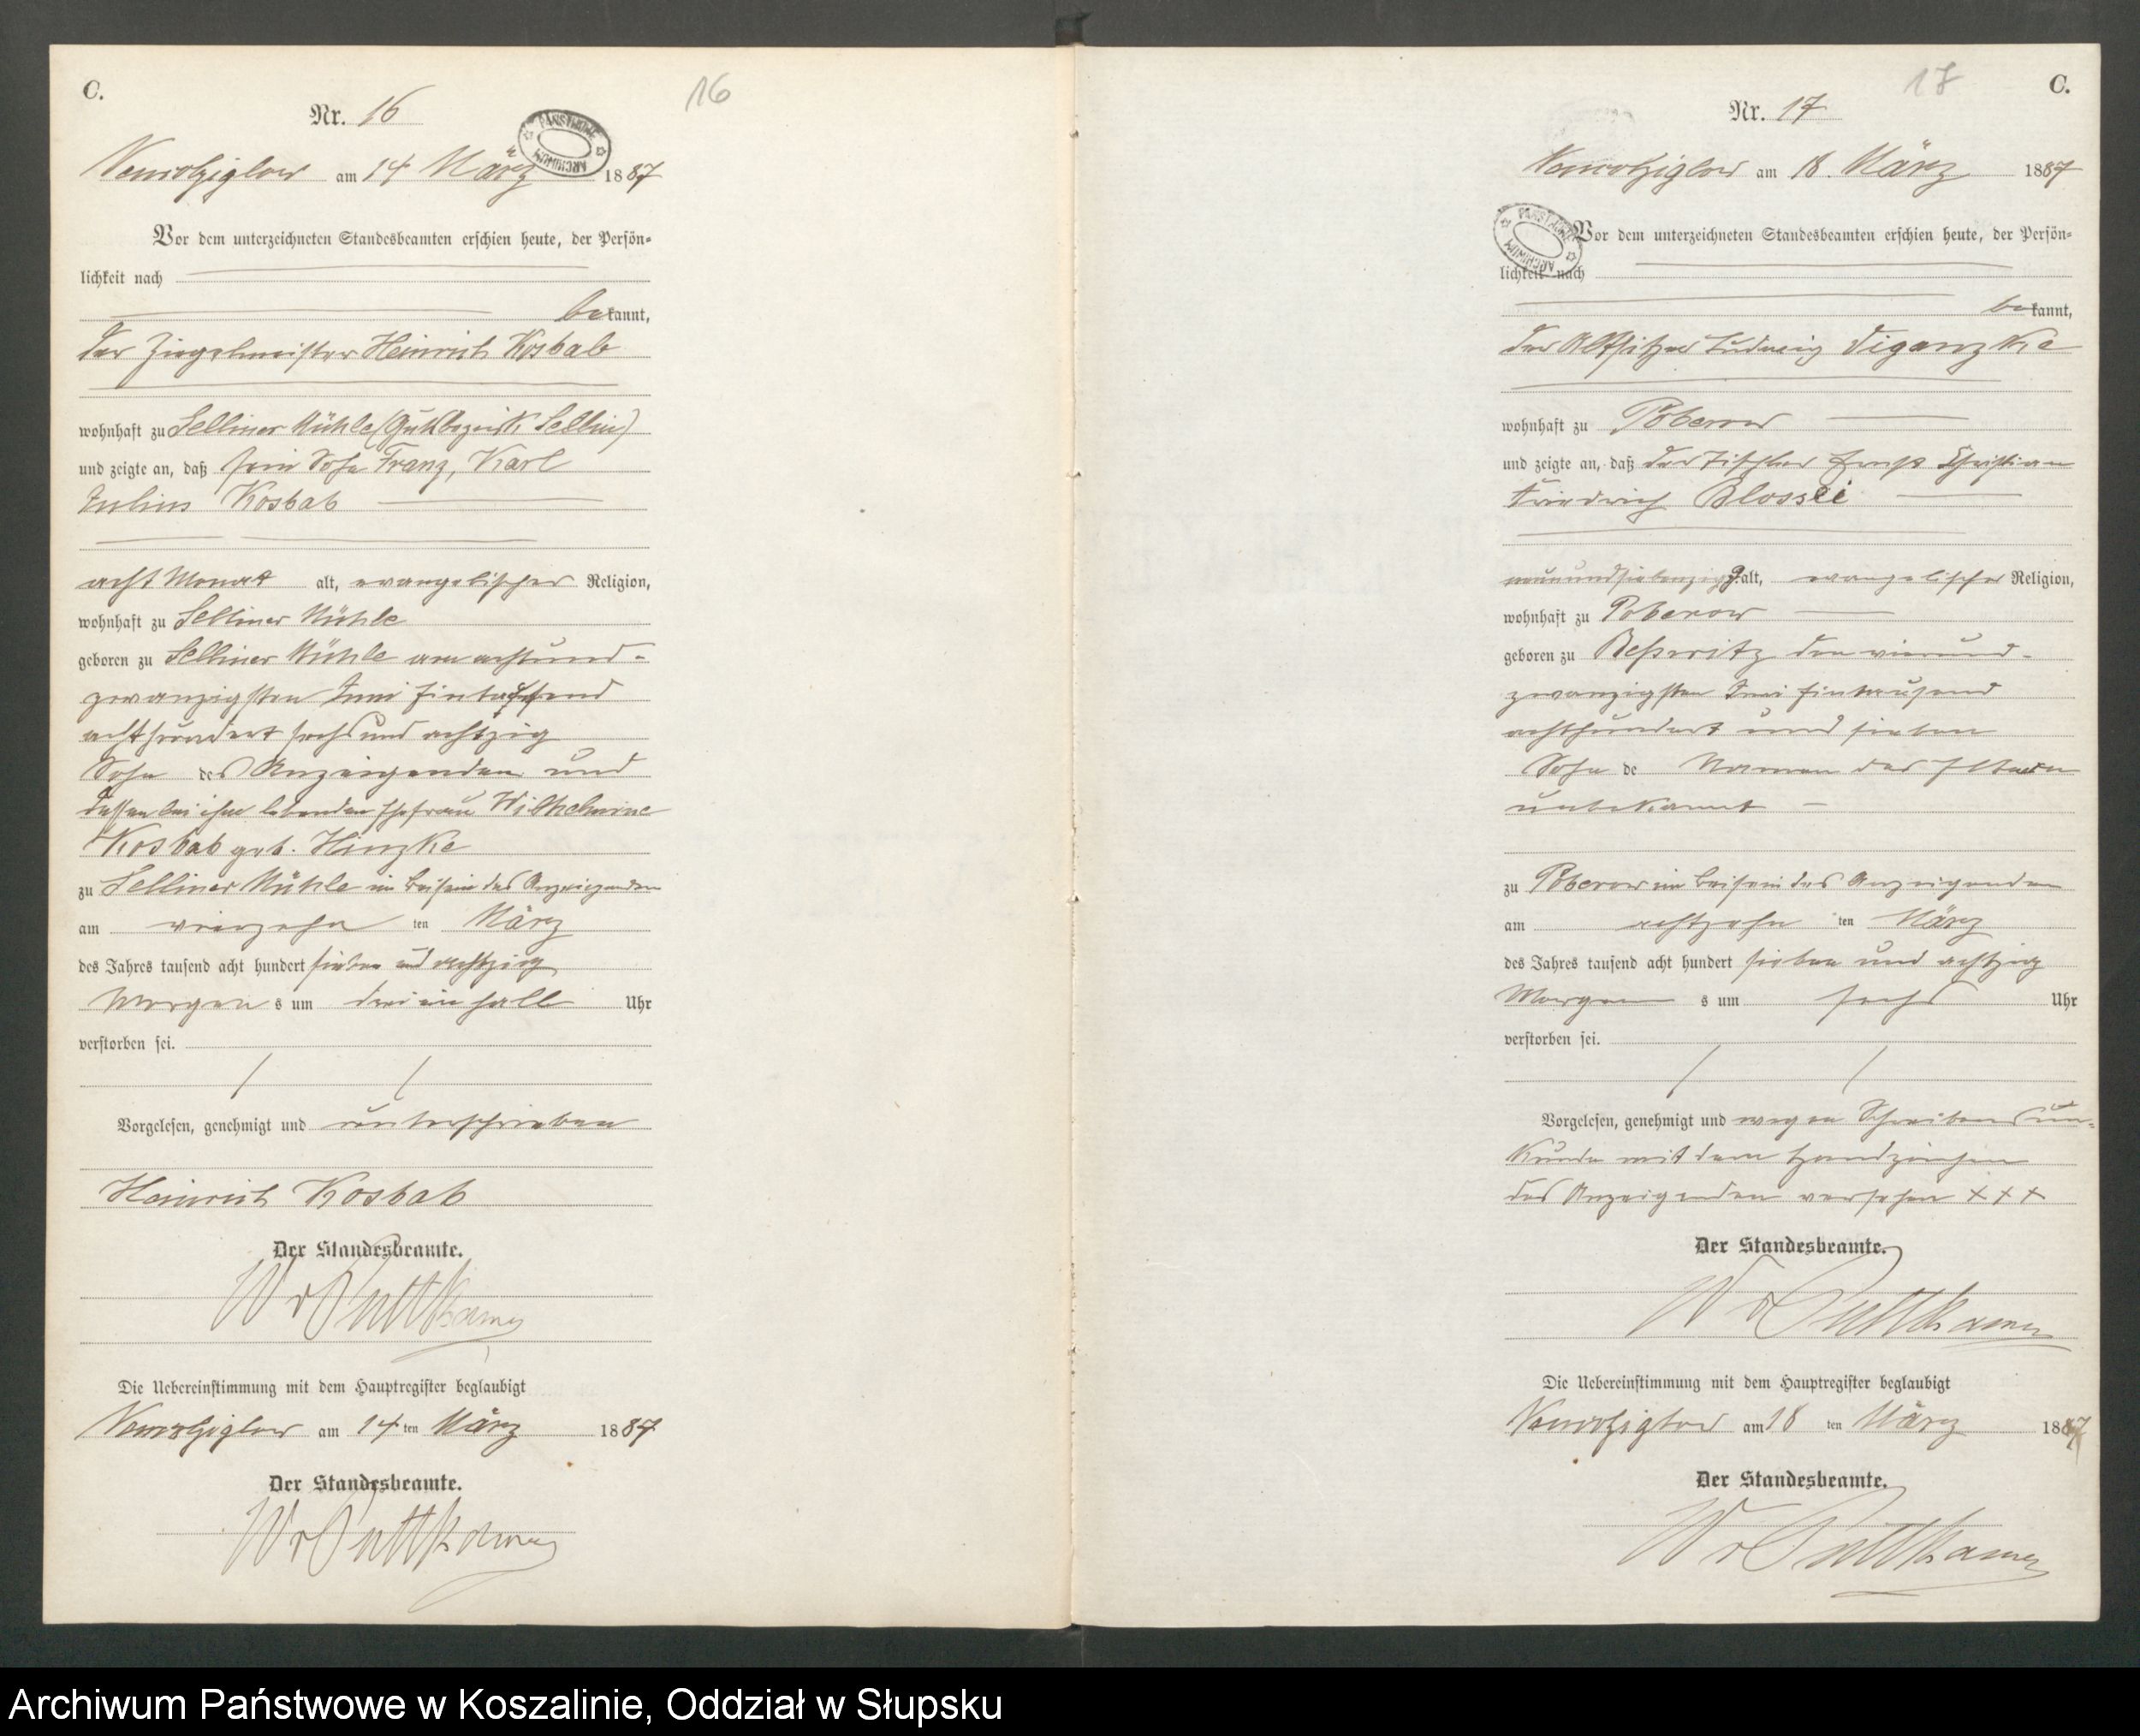 C.
16
Nr. 16
PAŃSTWOWE
ARCHIWUM
am 14 März 1887
Vor dem unterzeichneten Standesbeamten erschien heute, der Persön-
lichkeit nach
bekannt,
der Ziegelmeister Heinrich Kosbab
wohnhaft zu Selliner Mühle (Gutsbezirk Sellin)
und zeigte an, daß sein Sohn Franz, Karl
Julius Kosbab
acht Monat alt, evangelischer Religion,
wohnhaft zu Selliner Mühle
geboren zu Selliner Mühle am achtund-
zwanzigsten Juni Eintausend
achthundert sechs und achtzig
Sohn des Anzeigenden und
dessen bei ihm lebenden Ehefrau Wilhelmine
Kosbab geb. Hinzke
zu Selliner Mühle im Beisein des Anzeigenden
am vierzehn ten März
des Jahres tausend acht hundert sieben und achtzig
Morgen s um drei ein halb Uhr
verstorben sei.
Vorgelesen, genehmigt und unterschrieben
Heinrich Kosbab
Der Standesbeamte.
W v Puttkamer
Die Uebereinstimmung mit dem Hauptregister beglaubigt
am 14 ten März 1887
Der Standesbeamte.
W v Puttkamer
17
C.
Nr. 17
am 18. März 1887
PAŃSTWOWE
ARCHIWUM
Vor dem unterzeichneten Standesbeamten erschien heute, der Persön-
lichkeit nach
bekannt,
der Altsitzer Ludwig Diganzke
wohnhaft zu Poberow
und zeigte an, daß der Tischler Ernst Christian
Friedrich
neunundsiebenzig J. alt, evangelischer Religion,
wohnhaft zu Poberow
geboren zu Beßwitz den vierund-
zwanzigsten Eintausend
achthundert und sieben
Sohn de Namen der Eltern
unbekannt
zu Poberow im Beisein des Anzeigenden
am achtzehn ten März
des Jahres tausend acht hundert sieben und achtzig
Morgen s um sechs Uhr
verstorben sei.
Vorgelesen, genehmigt und wegen Schreibens un-
kunde mit dem Handzeichen
des Anzeigenden versehen +++
Der Standesbeamte.
W v Puttkamer
Die Uebereinstimmung mit dem Hauptregister beglaubigt
am 18 ten März 1887
Der Standesbeamte.
W v Puttkamer
Archiwum Państwowe w Koszalinie, Oddział w Słupsku